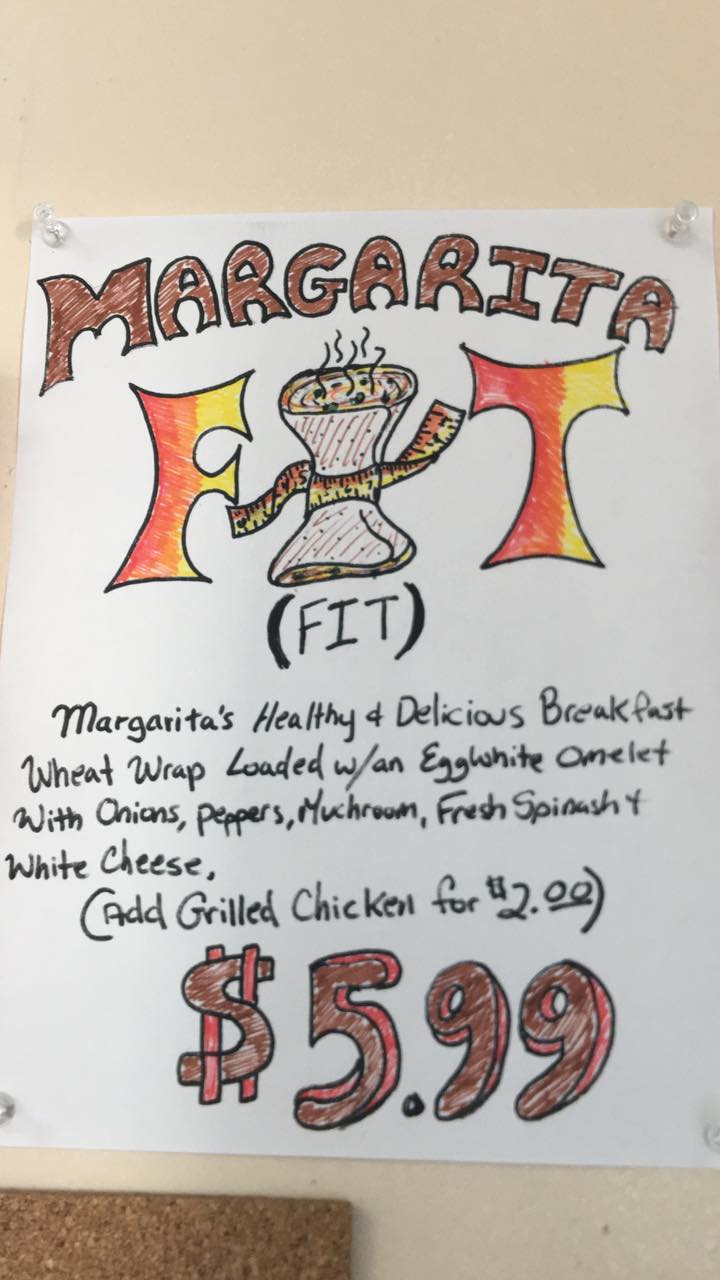 MARGARITA
F T
(FIT)
Margarita's Healthy & Delicious Breakfast
Wheat Wrap Loaded w/an Eggwhite Omelet
With Onions, Peppers, Muchroom, Fresh Spinash &
White Cheese,
(Add Grilled Chicken for $2.00)
$5.99